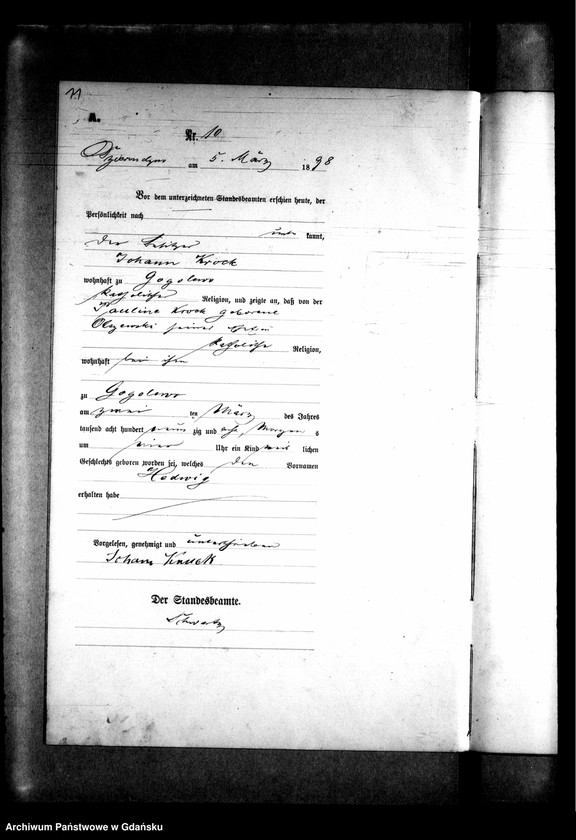 11
A.
Nr. 10
am 5. März 1898
Vor dem unterzeichneten Standesbeamten erschien heute, der
Persönlichkeit nach
kannt,
der Besitzer
Johann Krock
wohnhaft zu Gogolewo
katholischer Religion, und zeigte an, daß von der
Pauline Krock geborene
Olszewski seiner Ehefrau
katholischer Religion,
wohnhaft bei ihm
zu Gogolewo
am zwei ten März des Jahres
tausend acht hundert neun zig und acht, Morgen s
um vier Uhr ein Kind weib lichen
Geschlechts geboren worden sei, welches den Vornamen
Hedwig
erhalten habe
Vorgelesen, genehmigt und unterschrieben
Johann
Der Standesbeamte.
Archiwum Państwowe w Gdańsku